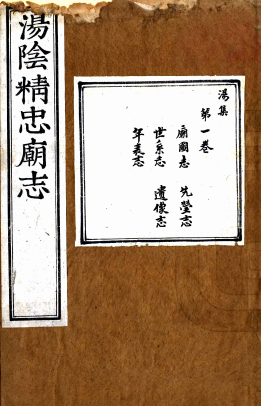 湯陰精忠廟志
湯集
第一卷
廟圖志 先塋志
世系志 遺像志
年表志